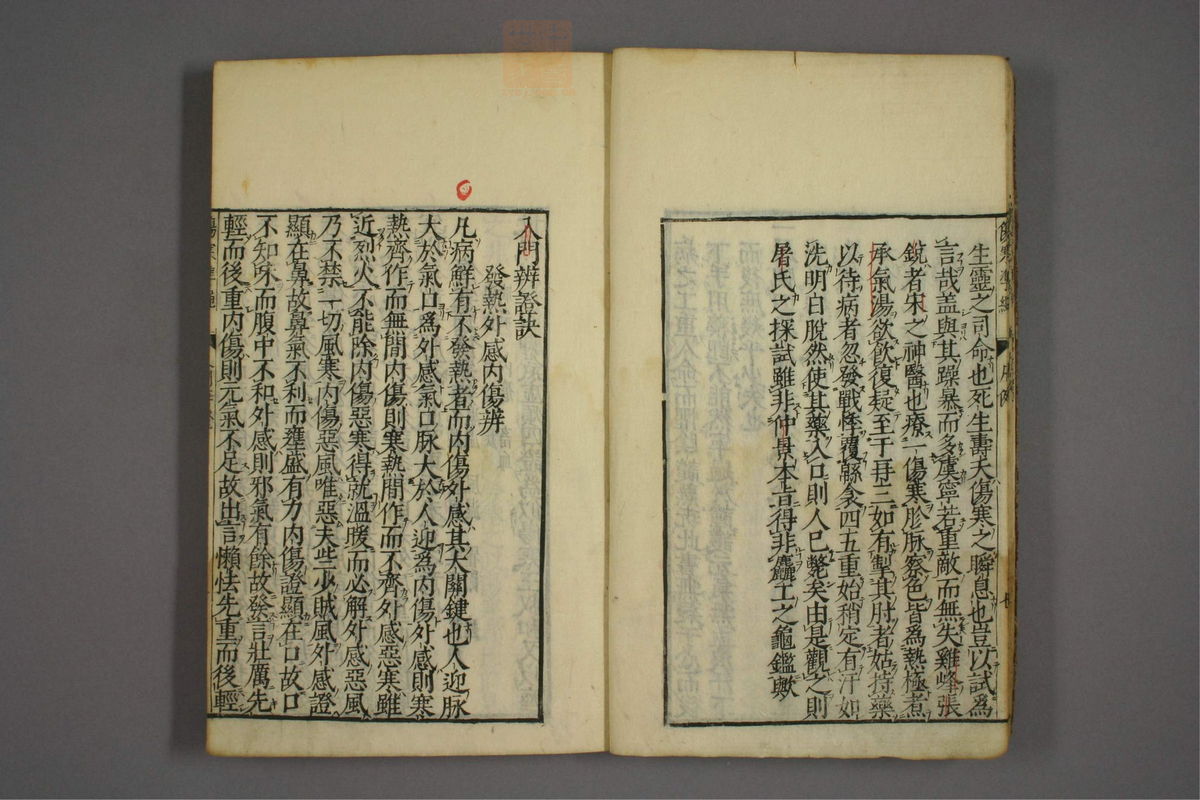 生靈之司命也死生壽夭傷寒之瞬息也豈以試爲
言哉盖與其躁暴而多虞寧若重敵而無失雞峰張
銳者宋之神醫也療一傷寒胗脉察色皆爲熱極煮
承氣湯欲飲復疑至于再三如有掣其肘者姑持藥
以待病者忽發戰悸覆緜衾四五重始稍定有汗如
洗明白脫然使其藥入口則人已斃矣由是觀之則
屠氏之探試雖非仲景本旨得非麤工之龜鑑歟
入門辨證訣
發熱外感內傷辨
凡病鮮有不發熱者而內傷外感其大關鍵也人迎脉
大於氣口爲外感氣口脉大於人迎爲內傷外感則寒
熱齊作而無間內傷則寒熱間作而不齊外感惡寒雖
近烈火不能除內傷惡寒得就溫暖而必解外感惡風
乃不禁一切風寒內傷惡風唯惡夫些少賊風外感證
顯在鼻故鼻氣不利而壅盛有力內傷證顯在口故口
不知味而腹中不和外感則邪氣有餘故發言壯厲先
輕而後重內傷則元氣不足故出言懶怯先重而後輕